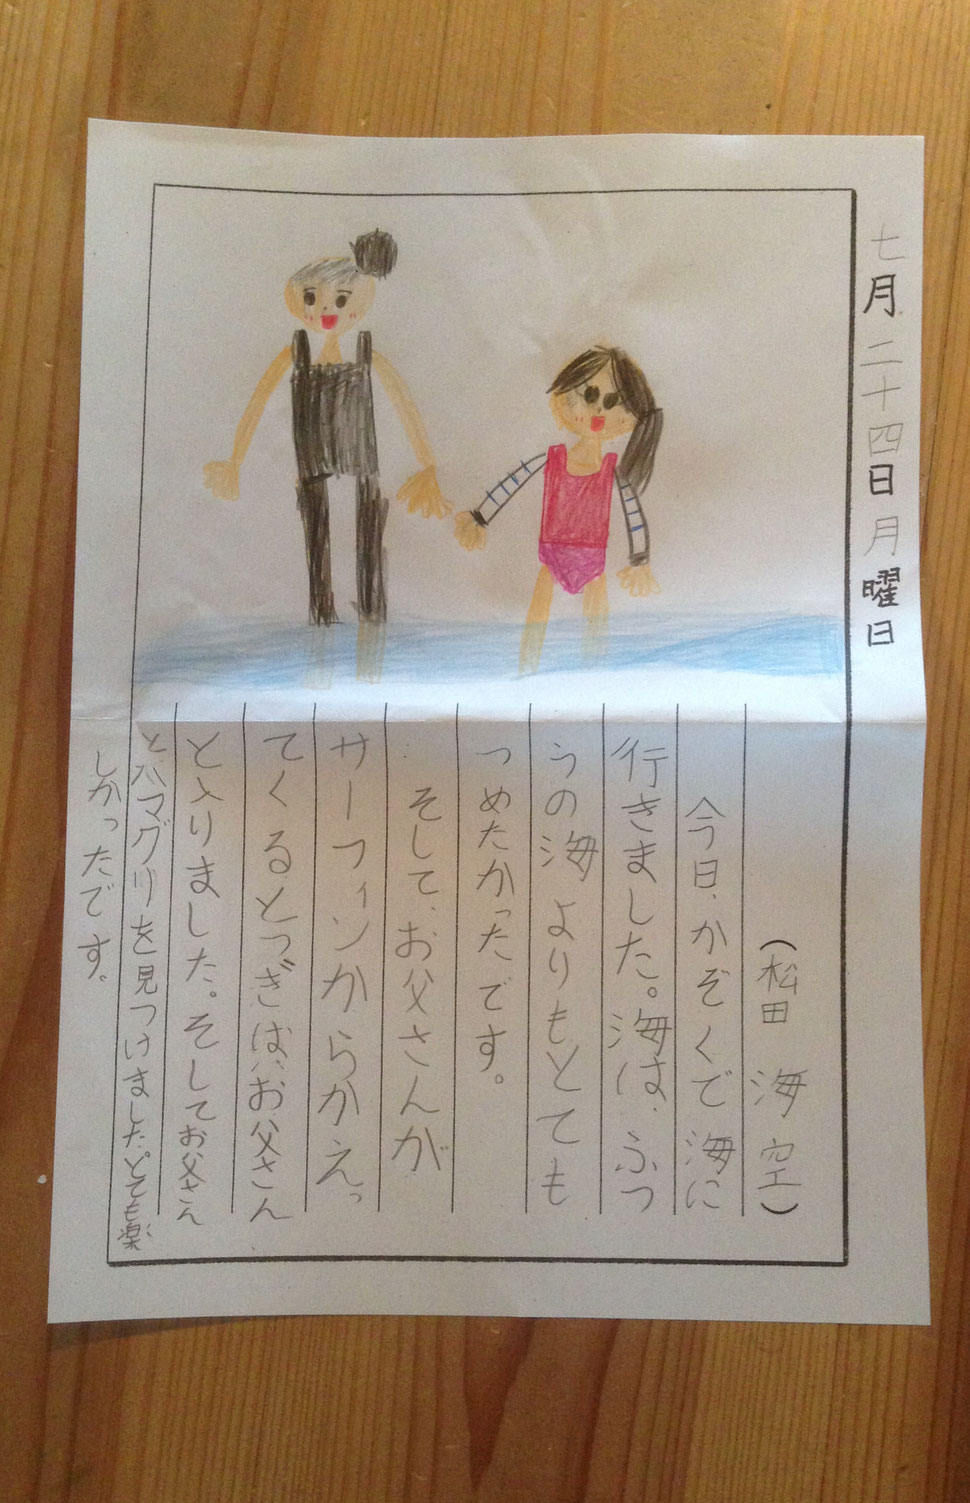 七月二十四日月曜日
（松田　海空）
今日、かぞくで海に
行きました。海は、ふつ
うの海よりもとても
つめたかったです。
そして、お父さんが
サーフィンからかえっ
てくるとつぎは、お父さん
と入りました。そしてお父さん
とハマグリを見つけましたとても楽
しかったです。